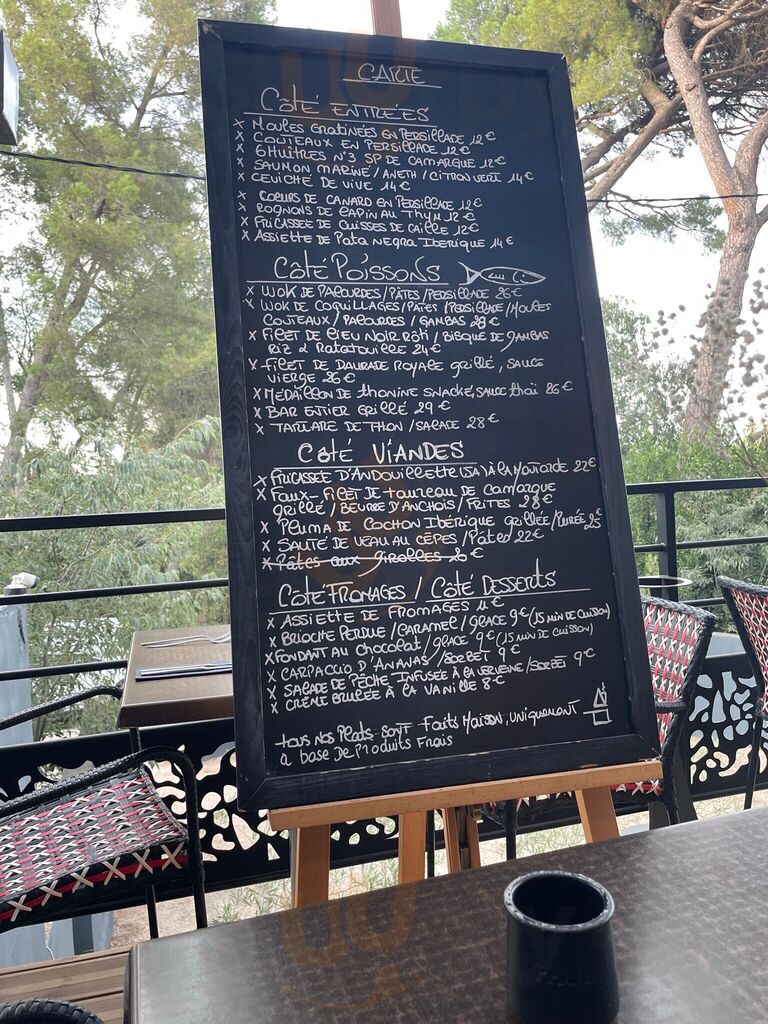 CARTE
Côté ENTRÉES
x MOULES GRATINÉES EN PERSILLADE 12€
x COUTEAUX EN PERSILLADE 12€
x 6 HUÎTRES N°3 SP DE CAMARGUE 12€
x SAUMON MARINÉ / ANETH / CITRON VERT 14€
x CEVICHE DE VIVE 14€
x COEURS DE CANARD EN PERSILLADE 12€
x ROGNONS DE LAPIN AU THYM 12€
x FRICASSÉE DE CUISSES DE CAILLE 12€
x ASSIETTE DE PATA NEGRA IBERIQUE 14€
Côté POISSONS
x WOK DE PALOURDES / PÂTES / PERSILLADE 26€
x WOK DE COQUILLAGES / PÂTES / PERSILLADE / MOULES
COUTEAUX / PALOURDES / GAMBAS 29€
x FILET DE LIEU NOIR RÔTI / BISQUE DE GAMBAS
RIZ & RATATOUILLE 24€
x FILET DE DAURADE ROYALE GRILLÉ, SAUCE
VIERGE 26€
x MÉDAILLON DE THONINE SNACKÉ, SAUCE THAÏ 26€
x BAR ENTIER GRILLÉ 29€
x TARTARE DE THON / SALADE 28€
Côté VIANDES
x FRICASSÉE D'ANDOUILLETTE (5A) À LA MOUTARDE 22€
x FAUX-FILET DE TAUREAU DE CAMARGUE
GRILLÉ / BEURRE D'ANCHOIS / FRITES 28€
x PLUMA DE COCHON IBÉRIQUE GRILLÉE / PURÉE 25€
x SAUTÉ DE VEAU AU CÈPES / PÂTES 22€
x PÂTES AUX GIROLLES €
Côté FROMAGES / Côté DESSERTS
x ASSIETTE DE FROMAGES €
x BRIOCHE PERDUE / CARAMEL / GLACE 9€ (15 MIN DE CUISSON)
x FONDANT AU CHOCOLAT / GLACE 9€ (15 MIN DE CUISSON)
x CARPACCIO D'ANANAS / SORBET 9€
x SALADE DE PÊCHE INFUSÉE À LA VERVEINE / SORBET 9€
x CRÈME BRULÉE À LA VANILLE 8€
TOUS NOS PLATS SONT FAITS MAISON, UNIQUEMENT
À BASE DE PRODUITS FRAIS